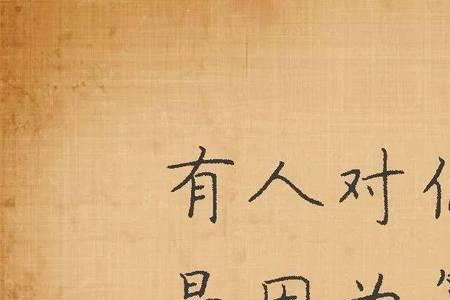 有人对
是因为